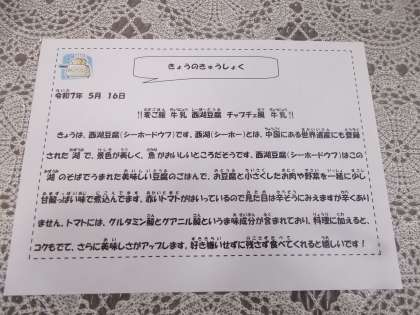 きょうのきゅうしょく
令和7年 5月 16日
!!麦ご飯 牛乳 西湖豆腐 チャプチェ風 牛乳!!
きょうは、西湖豆腐(シーホードウフ)です。西湖(シーホー)とは、中国にある世界遺産にも登録
された 湖 で、景色が美しく、魚がおいしいところだそうです。西湖豆腐(シーホードウフ)はこの
湖 のそばでうまれた美味しい豆腐のごはんで、お豆腐と小さくしたお肉や野菜を一緒に少し
甘酸っぱい味で煮込んでます。赤いトマトがはいっているので見た目は辛そうにみえますが辛くあり
ません。トマトには、グルタミン酸とグアニル酸といううま味成分が含まれており、料理に加えると、
コクもでて、さらに美味しさがアップします。好き嫌いせずに残さず食べてくれると嬉しいです!